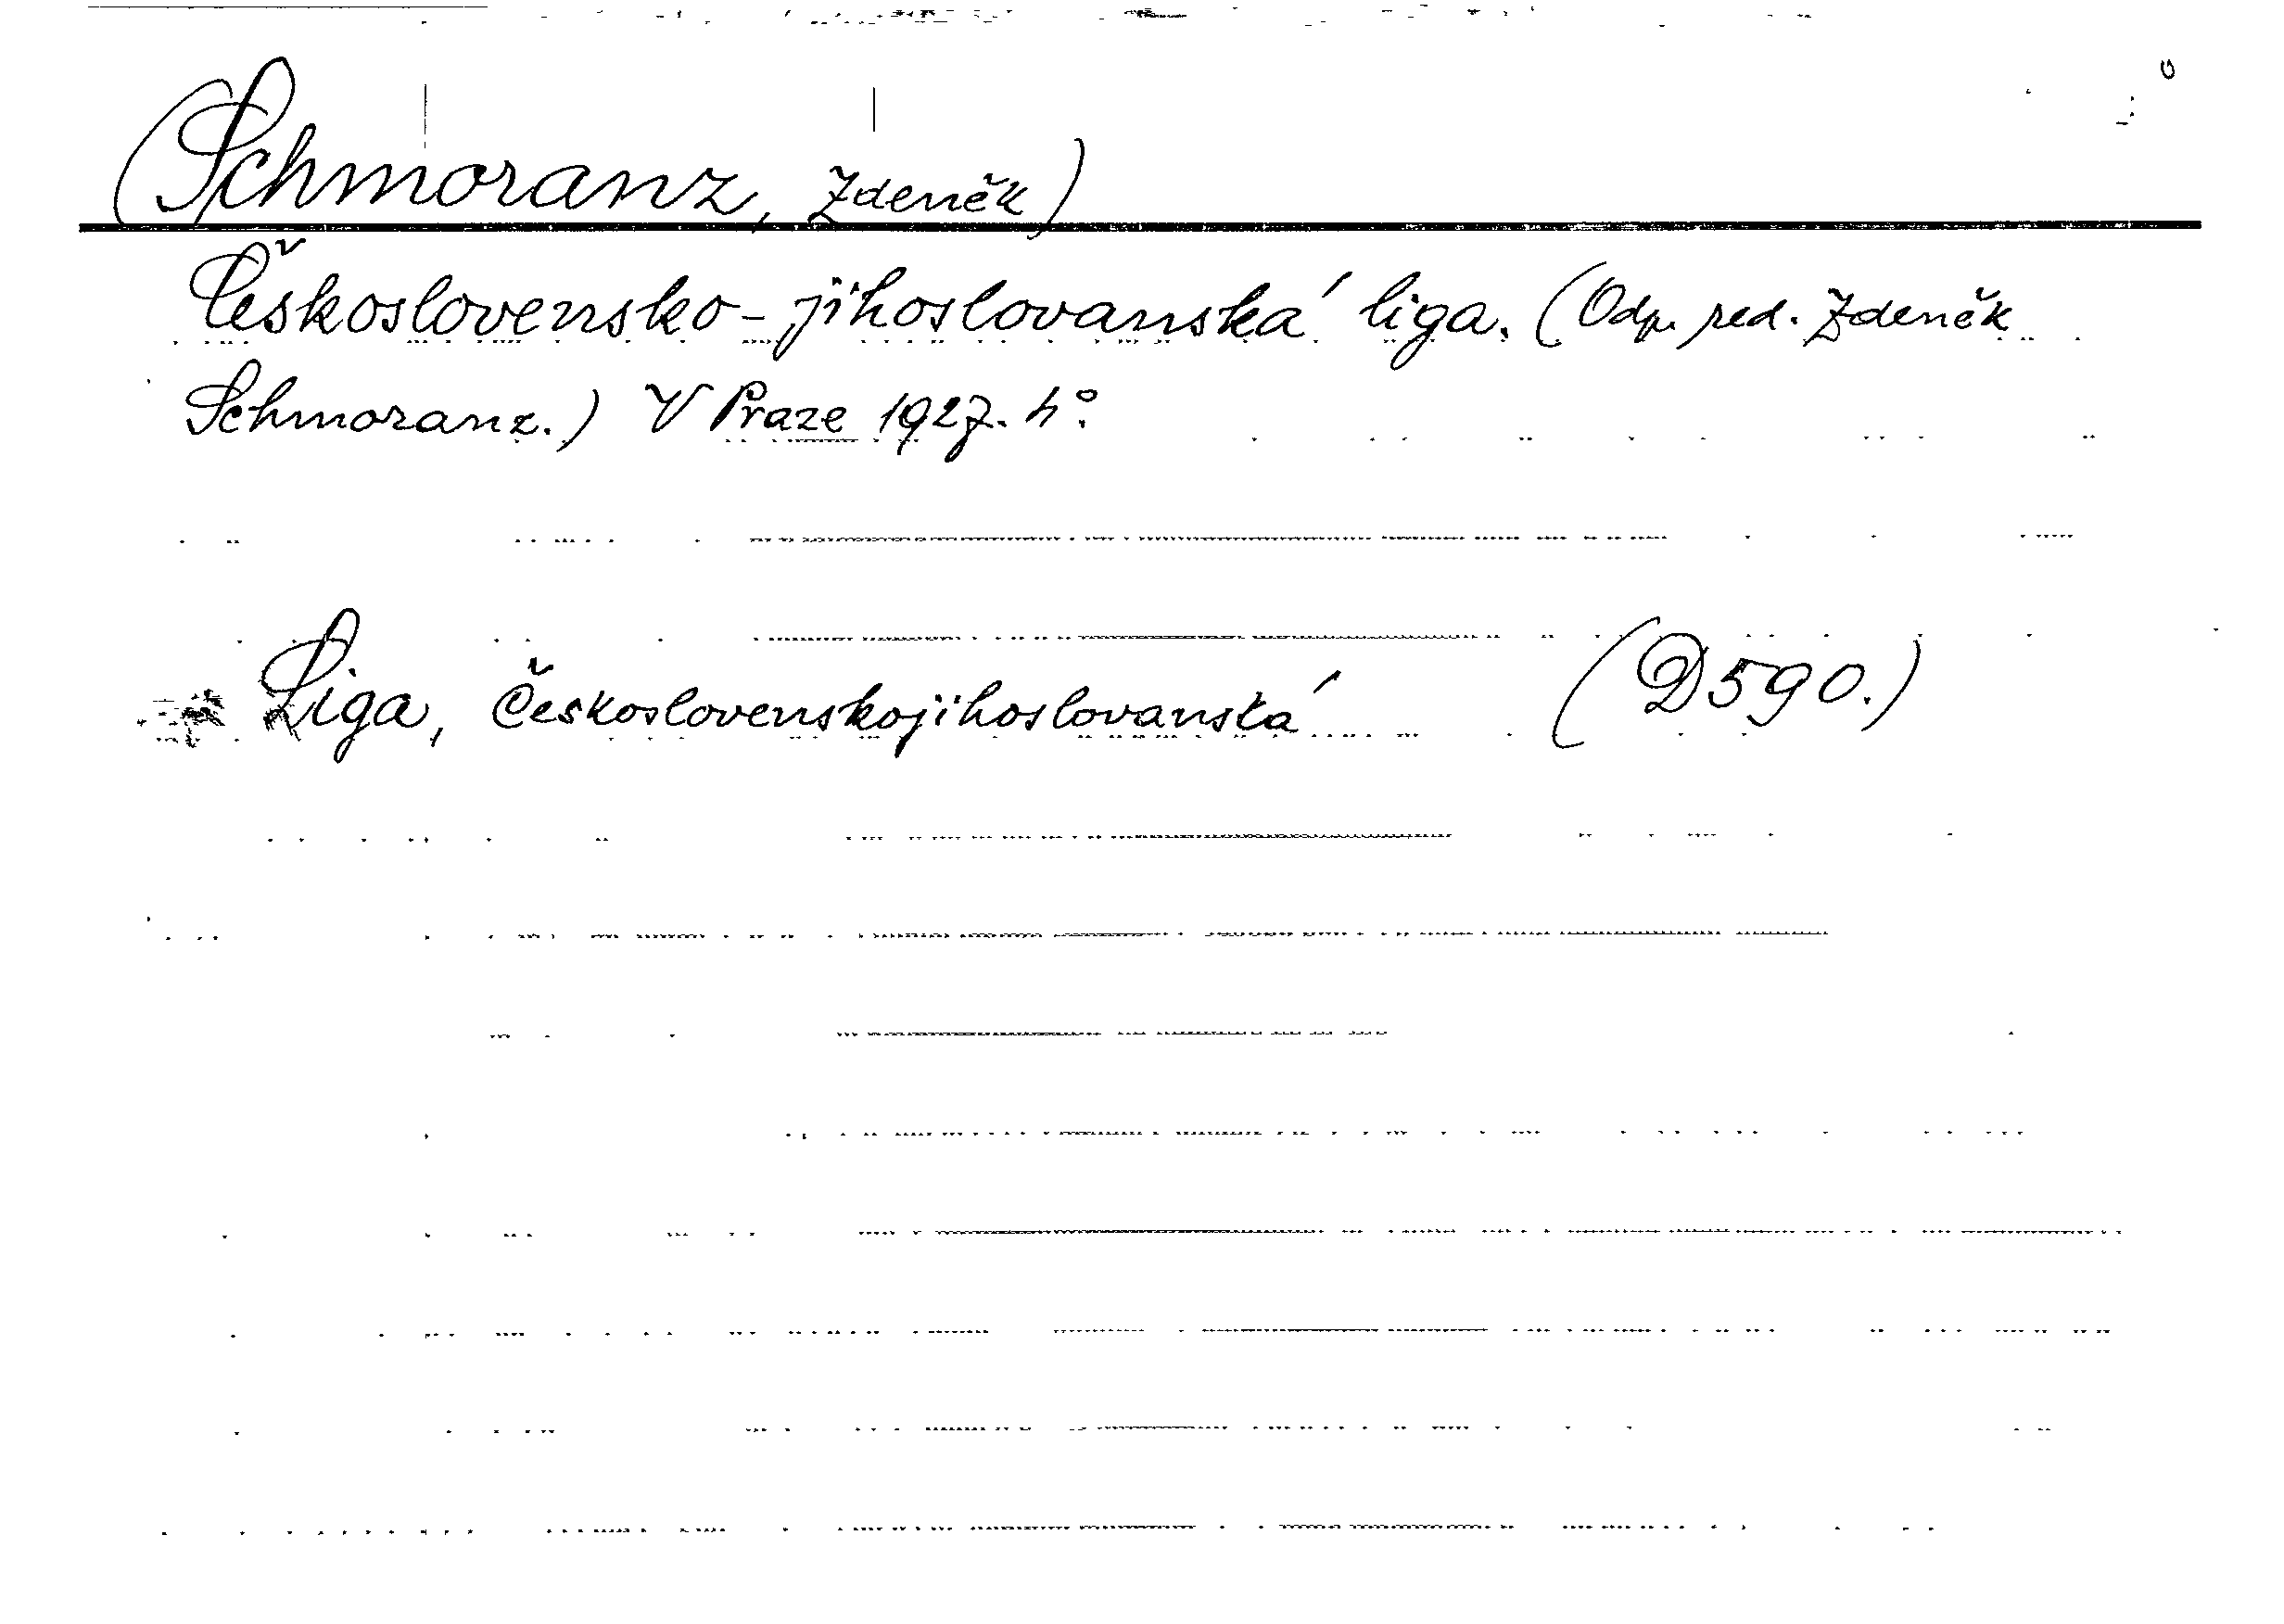 (Schmoranz, Zdeněk)
Československo-jihoslovanská liga. (Odp. red. Zdeněk
Schmoranz.) V Praze 1927. 4°.
Liga, československojihoslovanská (D 590.)